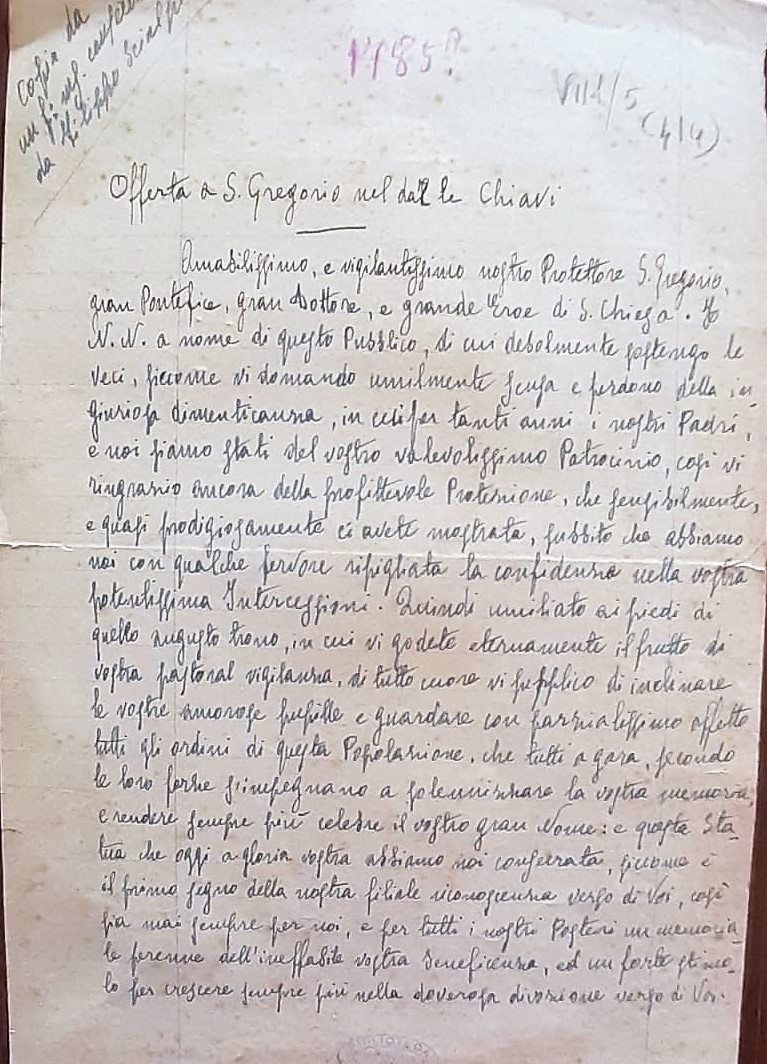 Copia da
un f. ms. conser
da Filippo Scialp
1785?
VIII/5
(414)
Offerta a S. Gregorio nel dar le Chiavi
Amabilissimo, e vigilantissimo nostro Protettore S. Gregorio,
gran Pontefice, gran Dottore, e grande Eroe di S. Chiesa. Io
N. N. a nome di questo Pubblico, di cui debolmente sostengo le
veci, siccome vi domando umilmente scusa e perdono della in-
giuriosa dimenticanza, in cui per tanti anni i nostri Padri,
e noi siamo stati del vostro valevolissimo Patrocinio, così vi
ringrazio ancora della profittevole Protezione, che sensibilmente,
e quasi prodigiosamente ci avete mostrata, subbito che abbiamo
noi con qualche fervore ripigliata la confidenza nella vostra
potentissima Intercessioni. Quindi umiliato ai piedi di
quello augusto trono, in cui vi godete eternamente il frutto di
vostra pastoral vigilanza, di tutto cuore vi supplico di inclinare
le vostre amorose pupille e guardare con parzialissimo affetto
tutti gli ordini di questa Popolazione, che tutti a gara, secondo
le loro forze s'impegnano a solennizzare la vostra memoria,
e rendere sempre più celebre il vostro gran Nome: e questa Sta-
tua che oggi a gloria vostra abbiamo noi consecrata, siccome è
il primo segno della nostra filiale riconoscenza verso di Voi, così
sia mai sempre per noi, e per tutti i nostri Posteri un memoria-
le perenne dell'ineffabile vostra beneficenza, ed un forte stimo-
lo per crescere sempre più nella doverosa divozione verso di Voi.